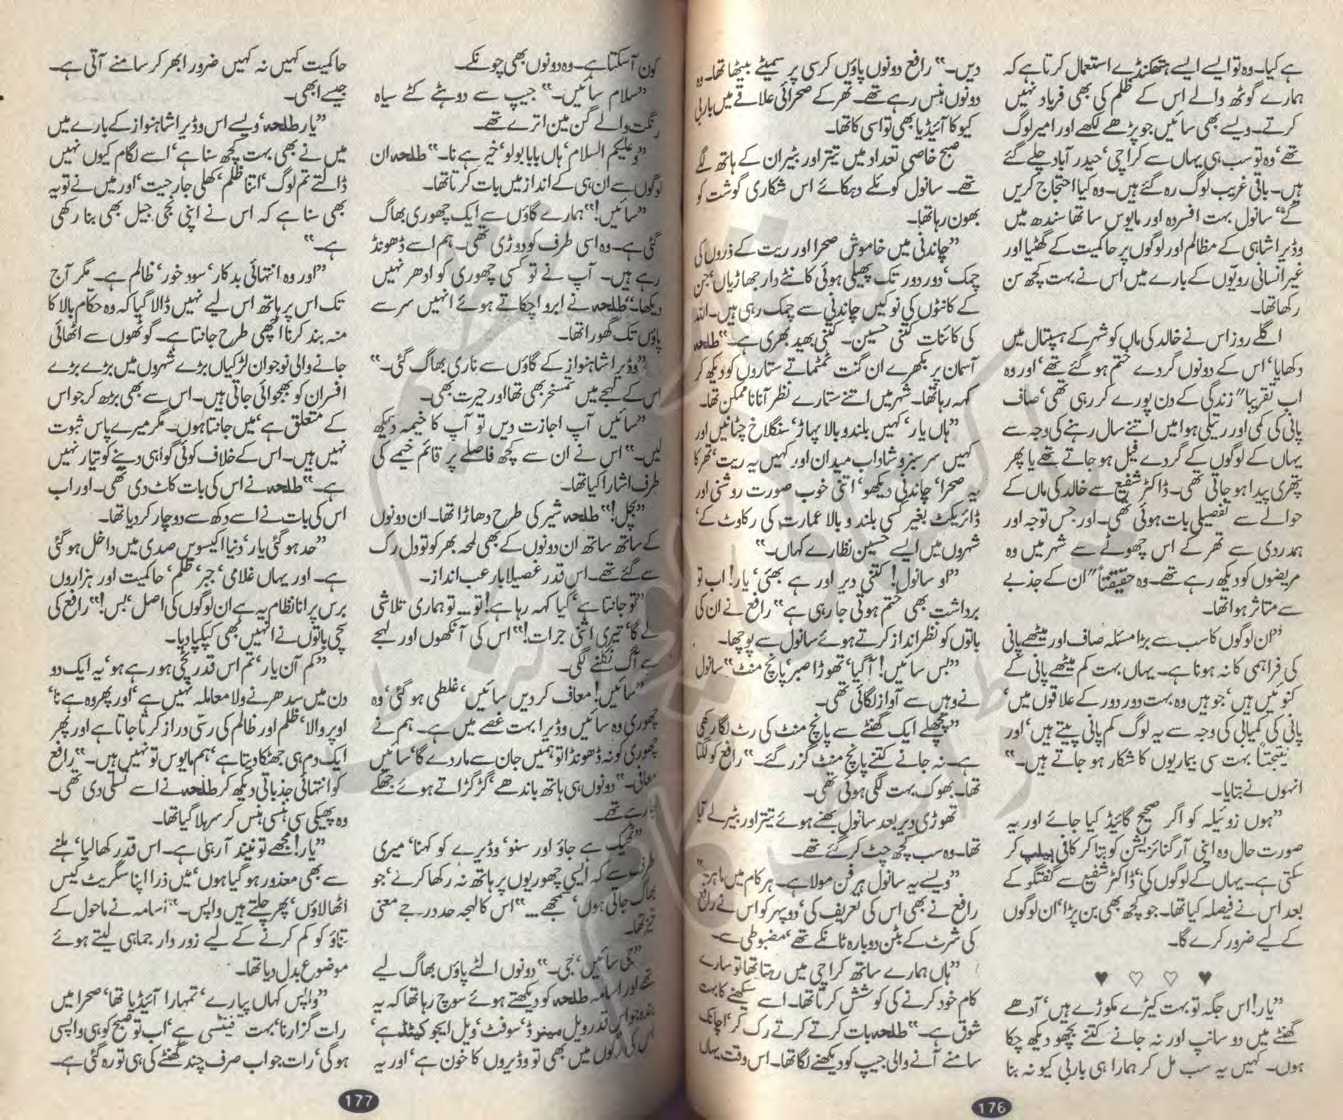 ہے کیا۔ وہ تو ایسے ایسے ہتھکنڈے استعمال کرتا ہے کہ
ہمارے گوٹھ والے اس کے ظلم کی بھی فریاد نہیں
کرتے۔ ویسے بھی سائیں جو پڑھے لکھے اور امیر لوگ
تھے‘ وہ تو سب ہی یہاں سے کراچی‘ حیدر آباد چلے گئے
ہیں۔ باقی غریب لوگ رہ گئے ہیں۔ وہ کیا احتجاج کریں
گے“ سانول بہت افسردہ اور مایوس سا تھا سندھ میں
وڈیرا شاہی کے مظالم اور لوگوں پر حاکمیت کے گھٹیا اور
غیر انسانی رویوں کے بارے میں اس نے بہت کچھ سن
رکھا تھا۔
اگلے روز اس نے خالد کی ماں کو شہر کے ہسپتال میں
دکھایا‘ اس کے دونوں گردے ختم ہو گئے تھے‘ اور وہ
اب تقریبا“ زندگی کے دن پورے کر رہی تھی‘ صاف
پانی کی کمی اور ریتلی ہوا میں اتنے سال رہنے کی وجہ سے
یہاں کے لوگوں کے گردے فیل ہو جاتے تھے یا پھر
پتھری پیدا ہو جاتی تھی۔ ڈاکٹر شفیع سے خالد کی ماں کے
حوالے سے تفصیلی بات ہوئی تھی۔ اور جس توجہ اور
ہمدردی سے تھر کے اس چھوٹے سے شہر میں وہ
مریضوں کو دیکھ رہے تھے۔ وہ حقیقتاً“ ان کے جذبے
سے متاثر ہوا تھا۔
”ان لوگوں کا سب سے بڑا مسئلہ صاف اور میٹھے پانی
کی فراہمی کا نہ ہونا ہے۔ یہاں بہت کم میٹھے پانی کے
کنوئیں ہیں‘ جو ہیں وہ بہت دور دور کے علاقوں میں‘
پانی کی کمیابی کی وجہ سے یہ لوگ کم پانی پیتے ہیں‘ اور
نتیجتاً بہت سی بیماریوں کا شکار ہو جاتے ہیں۔“
انہوں نے بتایا۔
”ہوں زوئیلہ کو اگر صحیح گائیڈ کیا جائے اور یہ
صورت حال وہ اپنی آرگنائزیشن کو بتا کر کافی ہیلپ کر
سکتی ہے۔ یہاں کے لوگوں کی‘ ڈاکٹر شفیع سے گفتگو کے
بعد اس نے فیصلہ کیا تھا۔ جو کچھ بھی بن پڑا‘ ان لوگوں
کے لیے ضرور کرے گا۔
♥ ♡ ♡ ♥
”یار! اس جگہ تو بہت کیڑے مکوڑے ہیں‘ آدھے
گھنٹے میں دو سانپ اور نہ جانے کتنے بچھو دیکھ چکا
ہوں۔ کہیں یہ سب مل کر ہمارا ہی باربی کیو نہ بنا
دیں۔“ رافع دونوں پاؤں کرسی پر سمیٹے بیٹھا تھا۔ وہ
دونوں ہنس رہے تھے۔ تھر کے صحرائی علاقے میں باربی
کیو کا آئیڈیا بھی تو اسی کا تھا۔
صبح خاصی تعداد میں تیتر اور بٹیر ان کے ہاتھ لگے
تھے۔ سانول کوئلے دہکائے اس شکاری گوشت کو
بھون رہا تھا۔
”چاندنی میں خاموش صحرا اور ریت کے ذروں کی
چمک‘ دور دور تک پھیلی ہوئی کانٹے دار جھاڑیاں‘ جن
کے کانٹوں کی نوکیں چاندنی سے چمک رہی ہیں۔ اللہ
کی کائنات کتنی حسین۔ کتنی بھید بھری ہے۔“ طلحہ
آسمان پر بکھرے ان گنت ٹمٹماتے ستاروں کو دیکھ کر
کہہ رہا تھا۔ شہر میں اتنے ستارے نظر آنا ناممکن تھا۔
”ہاں یار‘ کہیں بلند و بالا پہاڑ‘ سنگلاخ چٹانیں اور
کہیں سرسبز و شاداب میدان اور کہیں یہ ریت‘ تھر کا
یہ صحرا‘ چاندنی دیکھو‘ اتنی خوب صورت روشنی اور
ڈائریکٹ بغیر کسی بلند و بالا عمارت کی رکاوٹ کے‘
شہروں میں ایسے حسین نظارے کہاں۔“
”او سانول! کتنی دیر اور ہے بھئی‘ یار! اب تو
برداشت بھی ختم ہوتی جا رہی ہے“ رافع نے ان کی
باتوں کو نظر انداز کرتے ہوئے سانول سے پوچھا۔
”بس سائیں! آگیا‘ تھوڑا صبر‘ پانچ منٹ“ سانول
نے وہیں سے آواز لگائی تھی۔
”پچھلے ایک گھنٹے سے پانچ منٹ کی رٹ لگا رکھی
ہے۔ نہ جانے کتنے پانچ منٹ گزر گئے۔“ رافع کو لگتا
تھا۔ بھوک بہت لگی ہوئی تھی۔
تھوڑی دیر بعد سانول بھنے ہوئے تیتر اور بٹیر لے آیا
تھا۔ وہ سب کچھ چٹ کر گئے تھے۔
”ویسے یہ سانول ہر فن مولا ہے۔ ہر کام میں ماہر۔“
رافع نے بھی اس کی تعریف کی‘ دوپہر کو اس نے رافع
کی شرٹ کے بٹن دوبارہ ٹانکے تھے‘ مضبوطی سے۔
”ہاں ہمارے ساتھ کراچی میں رہتا تھا تو سارے
کام خود کرنے کی کوشش کرتا تھا۔ اسے سیکھنے کا بہت
شوق ہے۔“ طلحہ بات کرتے کرتے رک کر‘ اچانک
سامنے آنے والی جیپ کو دیکھنے لگا تھا۔ اس وقت یہاں
176
کون آ سکتا ہے۔ وہ دونوں بھی چونکے۔
”سلام سائیں۔“ جیپ سے دو ہٹے کٹے سیاہ
رنگت والے گن مین اترے تھے۔
”وعلیکم السلام‘ ہاں بابا بولو‘ خیر ہے نا۔“ طلحہ ان
لوگوں سے ان ہی کے انداز میں بات کرتا تھا۔
”سائیں! ہمارے گاؤں سے ایک چھوری بھاگ
گئی ہے۔ وہ اسی طرف کو دوڑی تھی۔ ہم اسے ڈھونڈ
رہے ہیں۔ آپ نے تو کسی چھوری کو ادھر نہیں
دیکھا۔“ طلحہ نے ابرو اچکاتے ہوئے انہیں سر سے
پاؤں تک گھورا تھا۔
”وڈیرا شاہنواز کے گاؤں سے ناری بھاگ گئی۔“
اس کے لہجے میں تمسخر بھی تھا اور حیرت بھی۔
”سائیں آپ اجازت دیں تو آپ کا خیمہ دیکھ
لیں۔“ اس نے ان سے کچھ فاصلے پر قائم خیمے کی
طرف اشارا کیا تھا۔
”بچل!“ طلحہ شیر کی طرح دھاڑا تھا۔ ان دونوں
کے ساتھ ساتھ ان دونوں کے بھی لمحہ بھر کو تو دل رک
سے گئے تھے۔ اس قدر غصیلا بارعب انداز۔
”تو جانتا ہے‘ کیا کہہ رہا ہے! تو... تو ہماری تلاشی
لے گا‘ تیری اتنی جرات!“ اس کی آنکھوں اور لہجے
سے آگ نکلنے لگی۔
”سائیں! معاف کر دیں سائیں‘ غلطی ہو گئی‘ وہ
چھوری وہ سائیں وڈیرا بہت غصے میں ہے۔ ہم نے
چھوری کو نہ ڈھونڈا تو ہمیں جان سے مار دے گا‘ سائیں
معافی۔“ دونوں ہی ہاتھ باندھے گڑگڑاتے ہوئے جھکے
رہے تھے۔
”ٹھیک ہے جاؤ اور سنو‘ وڈیرے کو کہنا‘ میری
طرف سے کہ ایسی چھوریوں پر ہاتھ نہ رکھا کرے‘ جو
بھاگ جاتی ہوں‘ سمجھے...“ اس کا لہجہ حد درجے معنی
خیز تھا۔
”جی سائیں‘ جی۔“ دونوں الٹے پاؤں بھاگ لیے
تھے اور اسامہ طلحہ کو دیکھتے ہوئے سوچ رہا تھا کہ یہ
بندہ جو اس قدر ویل مینرڈ‘ سوفٹ‘ ویل ایجوکیٹڈ ہے‘
اس کی رگوں میں بھی تو وڈیروں کا خون ہے‘ اور یہ
حاکمیت کہیں نہ کہیں ضرور ابھر کر سامنے آتی ہے۔
جیسے ابھی۔
”یار طلحہ‘ ویسے اس وڈیرا شاہنواز کے بارے میں
میں نے بھی بہت کچھ سنا ہے‘ اسے لگام کیوں نہیں
ڈالتے تم لوگ‘ اتنا ظلم‘ کھلی جارحیت‘ اور میں نے تو یہ
بھی سنا ہے کہ اس نے اپنی نجی جیل بھی بنا رکھی
ہے۔“
”اور وہ انتہائی بدکار‘ سود خور‘ ظالم ہے۔ مگر آج
تک اس پر ہاتھ اس لیے نہیں ڈالا گیا کہ وہ حکام بالا کا
منہ بند کرنا اچھی طرح جانتا ہے۔ گوٹھوں سے اٹھائی
جانے والی نوجوان لڑکیاں بڑے شہروں میں بڑے بڑے
افسران کو بھجوائی جاتی ہیں۔ اس سے بھی بڑھ کر جو اس
کے متعلق ہے‘ میں جانتا ہوں۔ مگر میرے پاس ثبوت
نہیں ہیں۔ اس کے خلاف کوئی گواہی دینے کو تیار نہیں
ہے۔“ طلحہ نے اس کی بات کاٹ دی تھی۔ اور اب
اس کی بات نے اسے دکھ سے دوچار کر دیا تھا۔
”حد ہو گئی یار‘ دنیا اکیسویں صدی میں داخل ہو گئی
ہے۔ اور یہاں غلامی‘ جبر‘ ظلم‘ حاکمیت اور ہزاروں
برس پرانا نظام یہ ہے ان لوگوں کی اصل‘ بس!“ رافع کی
سچی باتوں نے انہیں بھی کپکپا دیا۔
”کم آن یار‘ تم اس قدر ٹچی ہو رہے ہو‘ یہ ایک دو
دن میں سدھرنے ولا معاملہ نہیں ہے‘ اور پھر وہ ہے نا‘
اوپر والا‘ ظلم اور ظالم کی رسی دراز کرتا جاتا ہے اور پھر
ایک دم ہی جھٹکا دیتا ہے‘ ہم مایوس تو نہیں ہیں۔“ رافع
کو انتہائی جذباتی دیکھ کر طلحہ نے اسے تسلی دی تھی۔
وہ پھیکی سی ہنسی ہنس کر سر ہلا گیا تھا۔
”یار! مجھے تو نیند آ رہی ہے۔ اس قدر کھا لیا‘ ہلنے
سے بھی معذور ہو گیا ہوں‘ میں ذرا اپنا سگریٹ کیس
اٹھا لاؤں‘ پھر چلتے ہیں واپس۔“ اسامہ نے ماحول کے
تناؤ کو کم کرنے کے لیے زور دار جماہی لیتے ہوئے
موضوع بدل دیا تھا۔
”واپس کہاں پیارے‘ تمہارا آئیڈیا تھا‘ صحرا میں
رات گزارنا‘ بہت فینٹسی ہے‘ اب تو صبح کو ہی واپسی
ہو گی‘ رات جو اب صرف چند گھنٹے کی ہی تو رہ گئی ہے۔
177